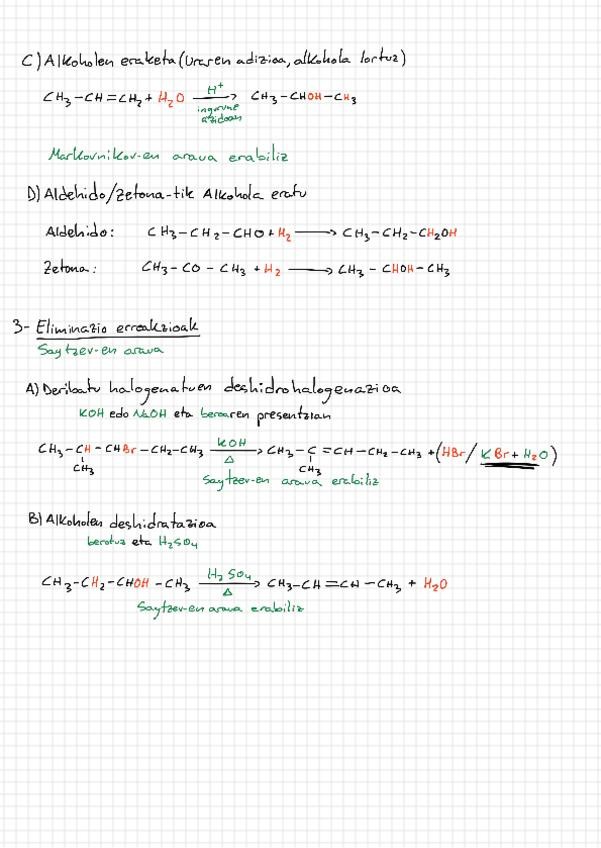 C) Alkoholen eraketa (Uraren adizioa, alkohola lortuz)
CH3-CH=CH2 + H2O H+ → CH3-CHOH-CH3
ingurune
azidoan
Markovnikov-en araua erabiliz
D) Aldehido/Zetona-tik Alkohola eratu
Aldehido: CH3-CH2-CHO + H2 → CH3-CH2-CH2OH
Zetona: CH3-CO-CH3 + H2 → CH3-CHOH-CH3
3- Eliminazio erreakzioak
Saytzev-en araua
A) Deribatu halogenatuen deshidrohalogenazioa
KOH edo NaOH eta beroaren presentzian
CH3-CH-CHBr-CH2-CH3 KOH → CH3-C=CH-CH2-CH3 + (HBr/KBr + H2O)
CH3 Δ CH3
Saytzev-en araua erabiliz
B) Alkoholen deshidratazioa
berotuz eta H2SO4
CH3-CH2-CHOH-CH3 H2SO4 → CH3-CH=CH-CH3 + H2O
Δ
Saytzev-en araua erabiliz